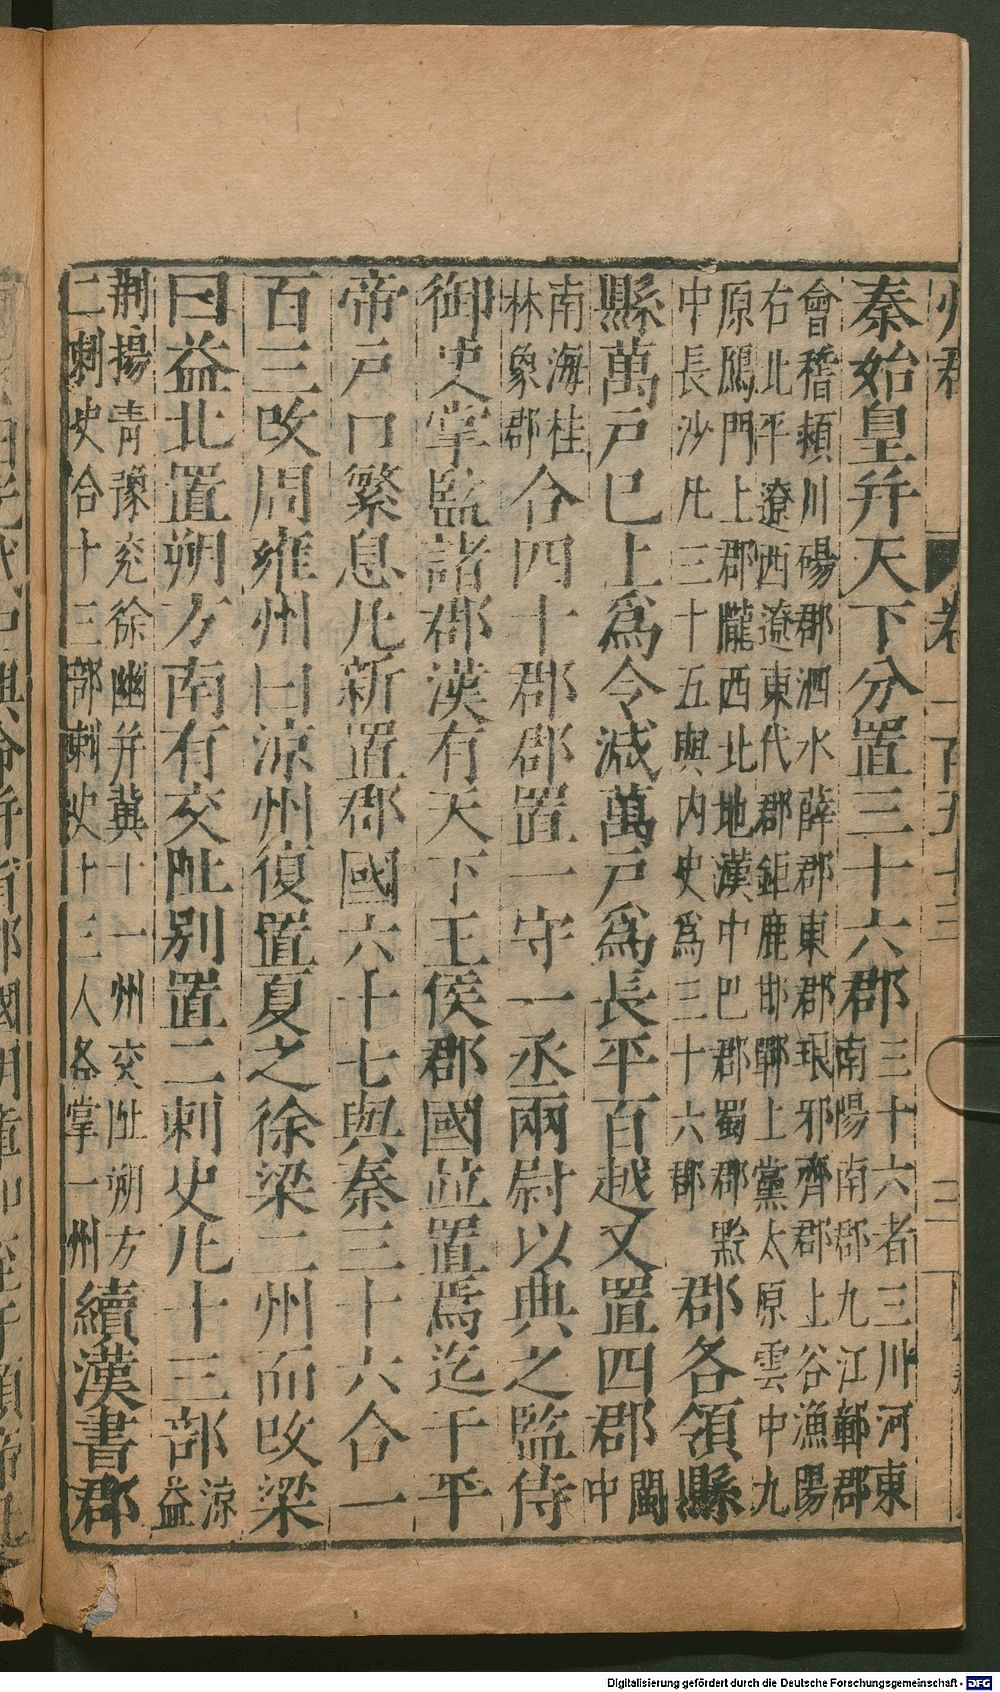 州郡 卷一百五十三 三
秦始皇并天下分置三十六郡
三十六者三川河東
南陽南郡九江鄣郡
會稽潁川碭郡泗水薛郡東郡琅邪齊郡上谷漁陽
右北平遼西遼東代郡鉅鹿邯鄲上黨太原雲中九
原鴈門上郡隴西北地漢中巴郡蜀郡黔
中長沙凡三十五與内史爲三十六郡
郡各領縣
縣萬戸已上爲令減萬戸爲長平百越又置四郡
閩
中
南海桂
林象郡
合四十郡郡置一守一丞兩尉以典之監侍
御史掌監諸郡漢有天下王侯郡國竝置焉迄于平
帝戸口繁息凡新置郡國六十七與秦三十六合一
百三攺周雍州曰涼州復置夏之徐梁二州而攺梁
曰益北置朔方南有交阯别置二刺史凡十三部
涼
益
荆揚青豫兖徐幽并冀十一州交阯朔方
二刺史合十三部刺史十三人各掌一州
續漢書郡
Digitalisierung gefördert durch die Deutsche Forschungsgemeinschaft - DFG